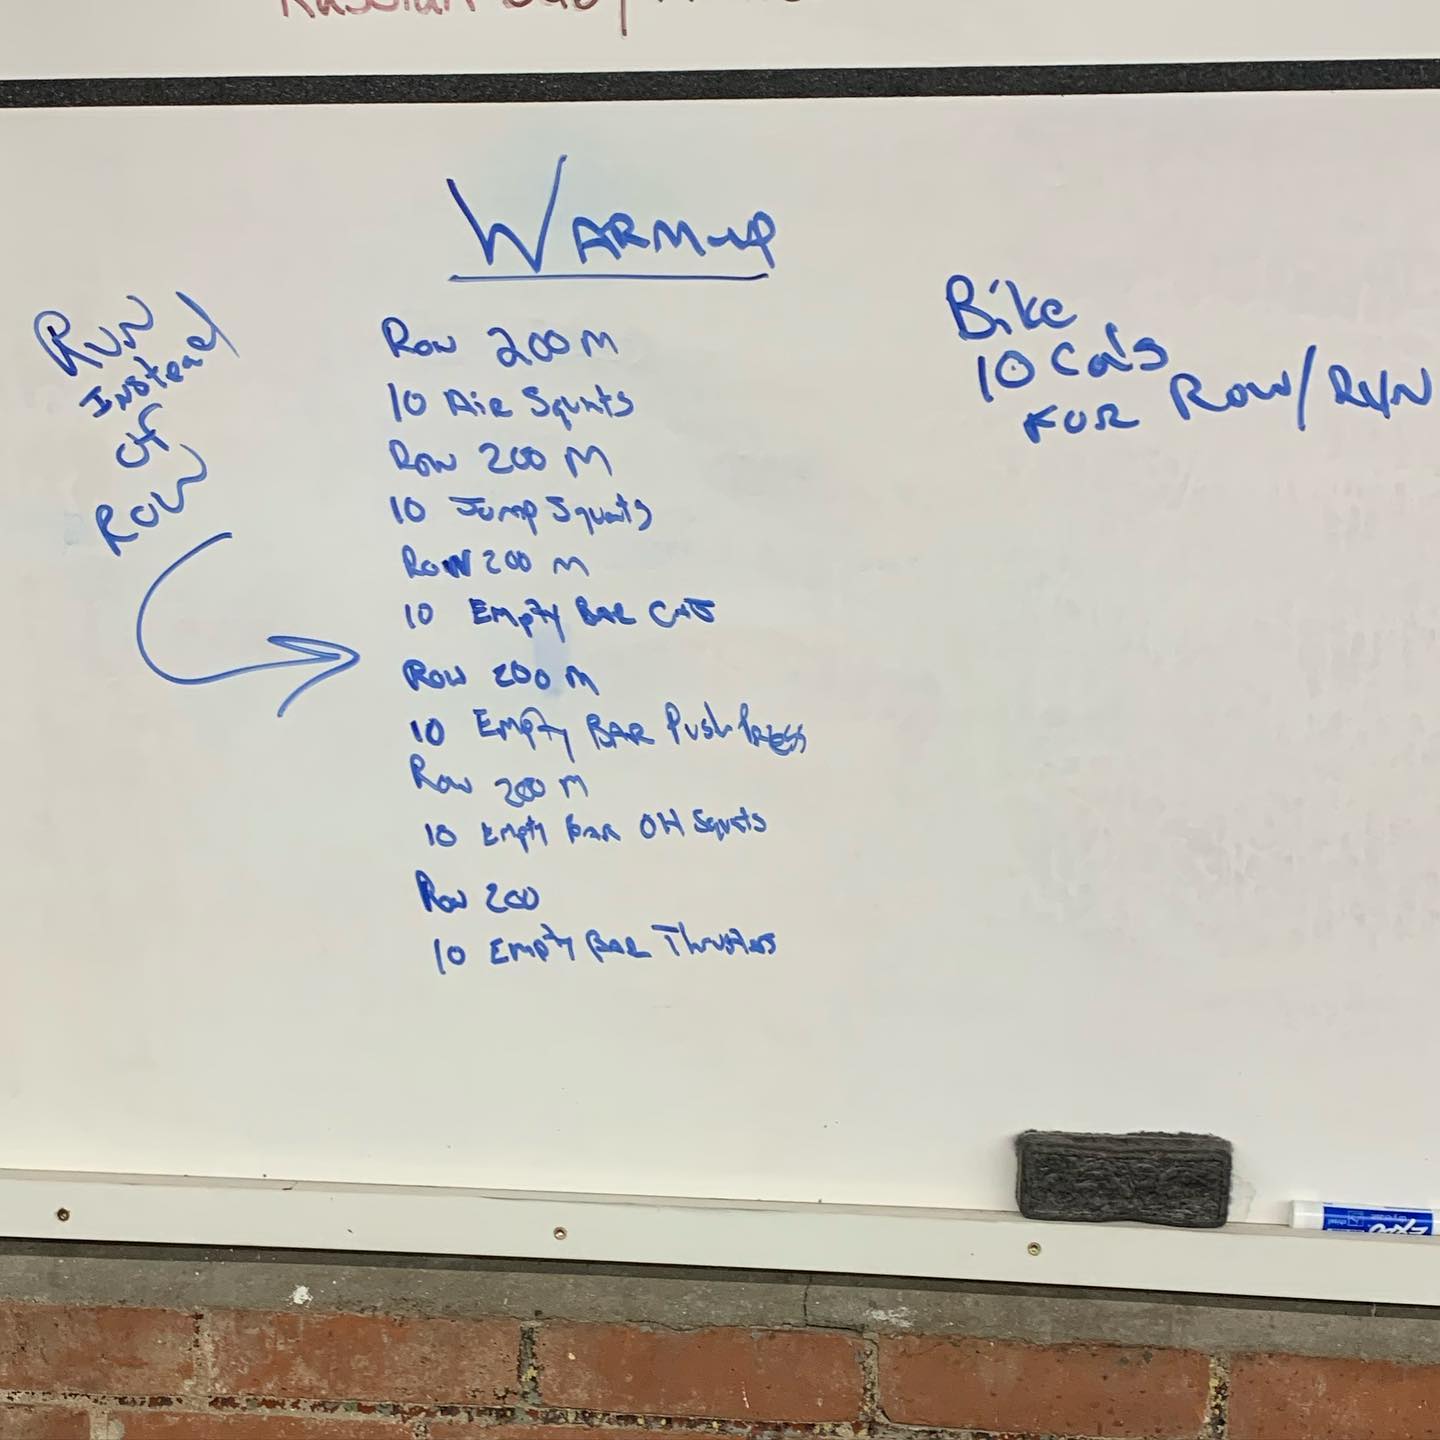 Russian
WARM-up
Run
Instead
of
Row
Row 200 M
10 Air Squats
Row 200 M
10 Jump Squats
Row 200 M
10 Empty Bar
Row 200 M
10 Empty Bar Push Press
Row 200 M
10 Empty Bar OH Squats
Row 200
10 Empty Bar Thrusters
Bike
10 Cals
For Row/Run
EXPO